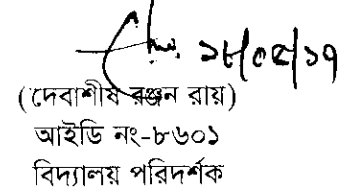 ১৮/০৫/১৭
(দেবাশীষ রঞ্জন রায়)
আইডি নং-৮৬০১
বিদ্যালয় পরিদর্শক